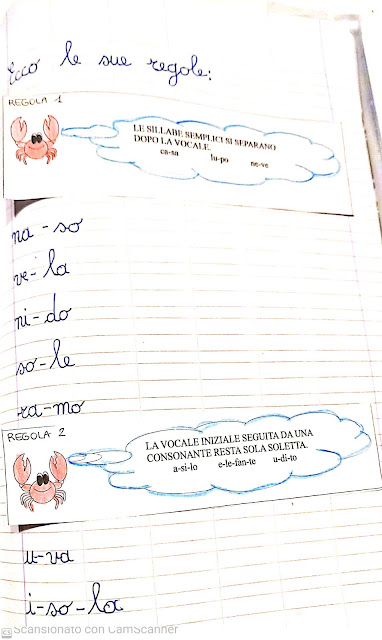 Ecco le sue regole:
REGOLA 1
LE SILLABE SEMPLICI SI SEPARANO
DOPO LA VOCALE.
ca-sa lu-po ne-ve
na-so
ve-la
ni-do
so-le
ra-mo
REGOLA 2
LA VOCALE INIZIALE SEGUITA DA UNA
CONSONANTE RESTA SOLA SOLETTA.
a-si-lo e-le-fan-te u-di-to
u-va
i-so-la
CS Scansionato con CamScanner